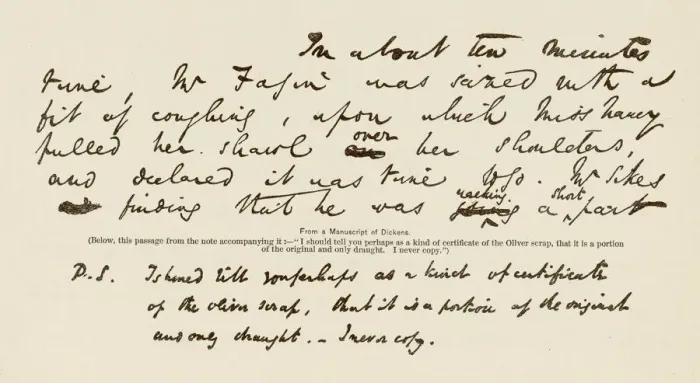 In about ten minutes
time, Mr Fagin was seized with a
fit of coughing, upon which Miss Nancy
pulled her shawl over her shoulders,
and declared it was time to go. Mr Sikes
finding that he was walking a short part
From a Manuscript of Dickens.
(Below, this passage from the note accompanying it :—"I should tell you perhaps as a kind of certificate of the Oliver scrap, that it is a portion
of the original and only draught. I never copy.")
P.S. I should tell you perhaps as a kind of certificate
of the Oliver scrap, that it is a portion of the original
and only draught. – I never copy.